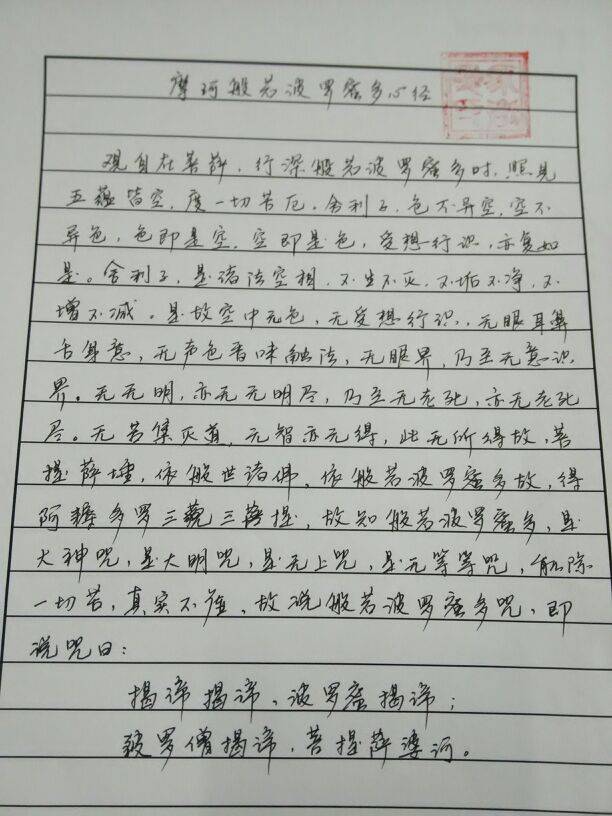 摩珂般若波罗蜜多心经
观自在菩萨，行深般若波罗蜜多时，照见
五蕴皆空，度一切苦厄。舍利子，色不异空，空不
异色，色即是空，空即是色，受想行识，亦复如
是。舍利子，是诸法空相，不生不灭，不垢不净，不
增不减。是故空中无色，无受想行识，无眼耳鼻
舌身意，无声色香味触法，无眼界，乃至无意识
界。无无明，亦无无明尽，乃至无老死，亦无老死
尽。无苦集灭道，无智亦无得，此无所得故，菩
提萨埵，依般世诸佛，依般若波罗蜜多故，得
阿耨多罗三藐三菩提，故知般若波罗蜜多，是
大神咒，是大明咒，是无上咒，是无等等咒，能除
一切苦，真实不虚，故说般若波罗蜜多咒，即
说咒曰：
揭谛揭谛、波罗蜜揭谛；
般罗僧揭谛，菩提萨婆诃。